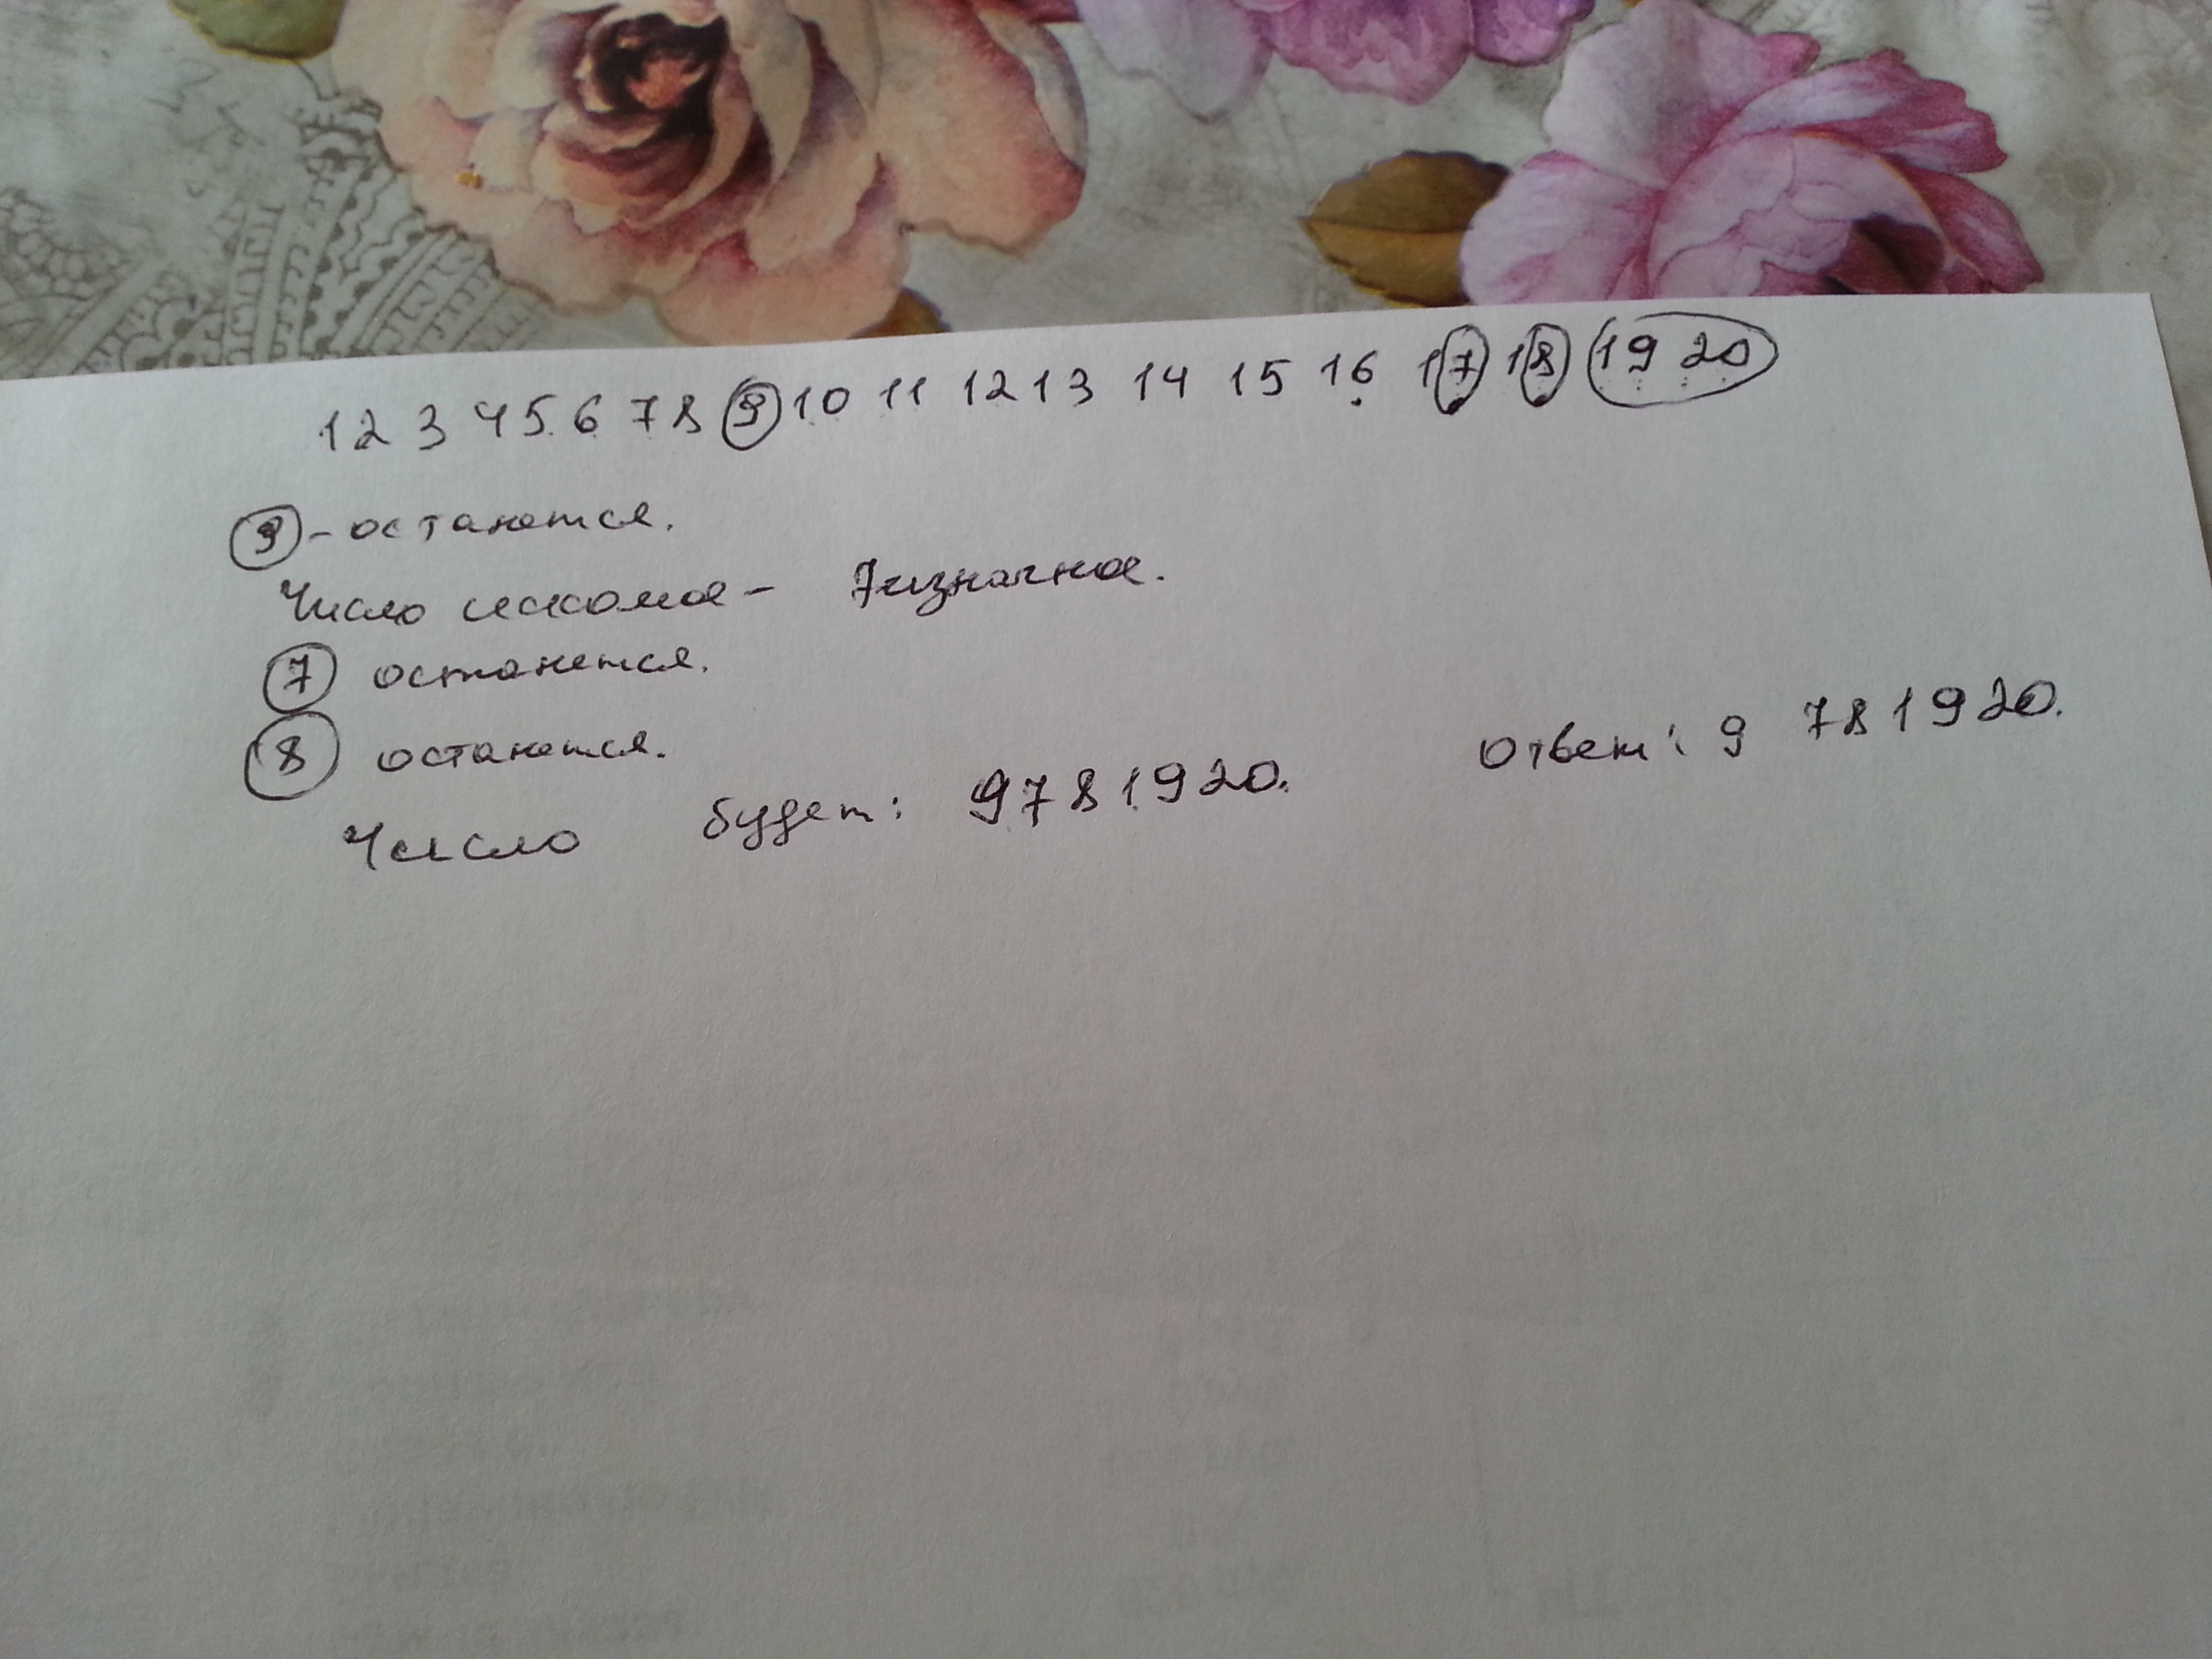 1 2 3 4 5 6 7 8 9 10 11 12 13 14 15 16 17 18 19 20
9 - останется.
Число искомое - 7изначное.
7 останется.
8 останется.
Число будет: 9781920. Ответ: 9 781920.